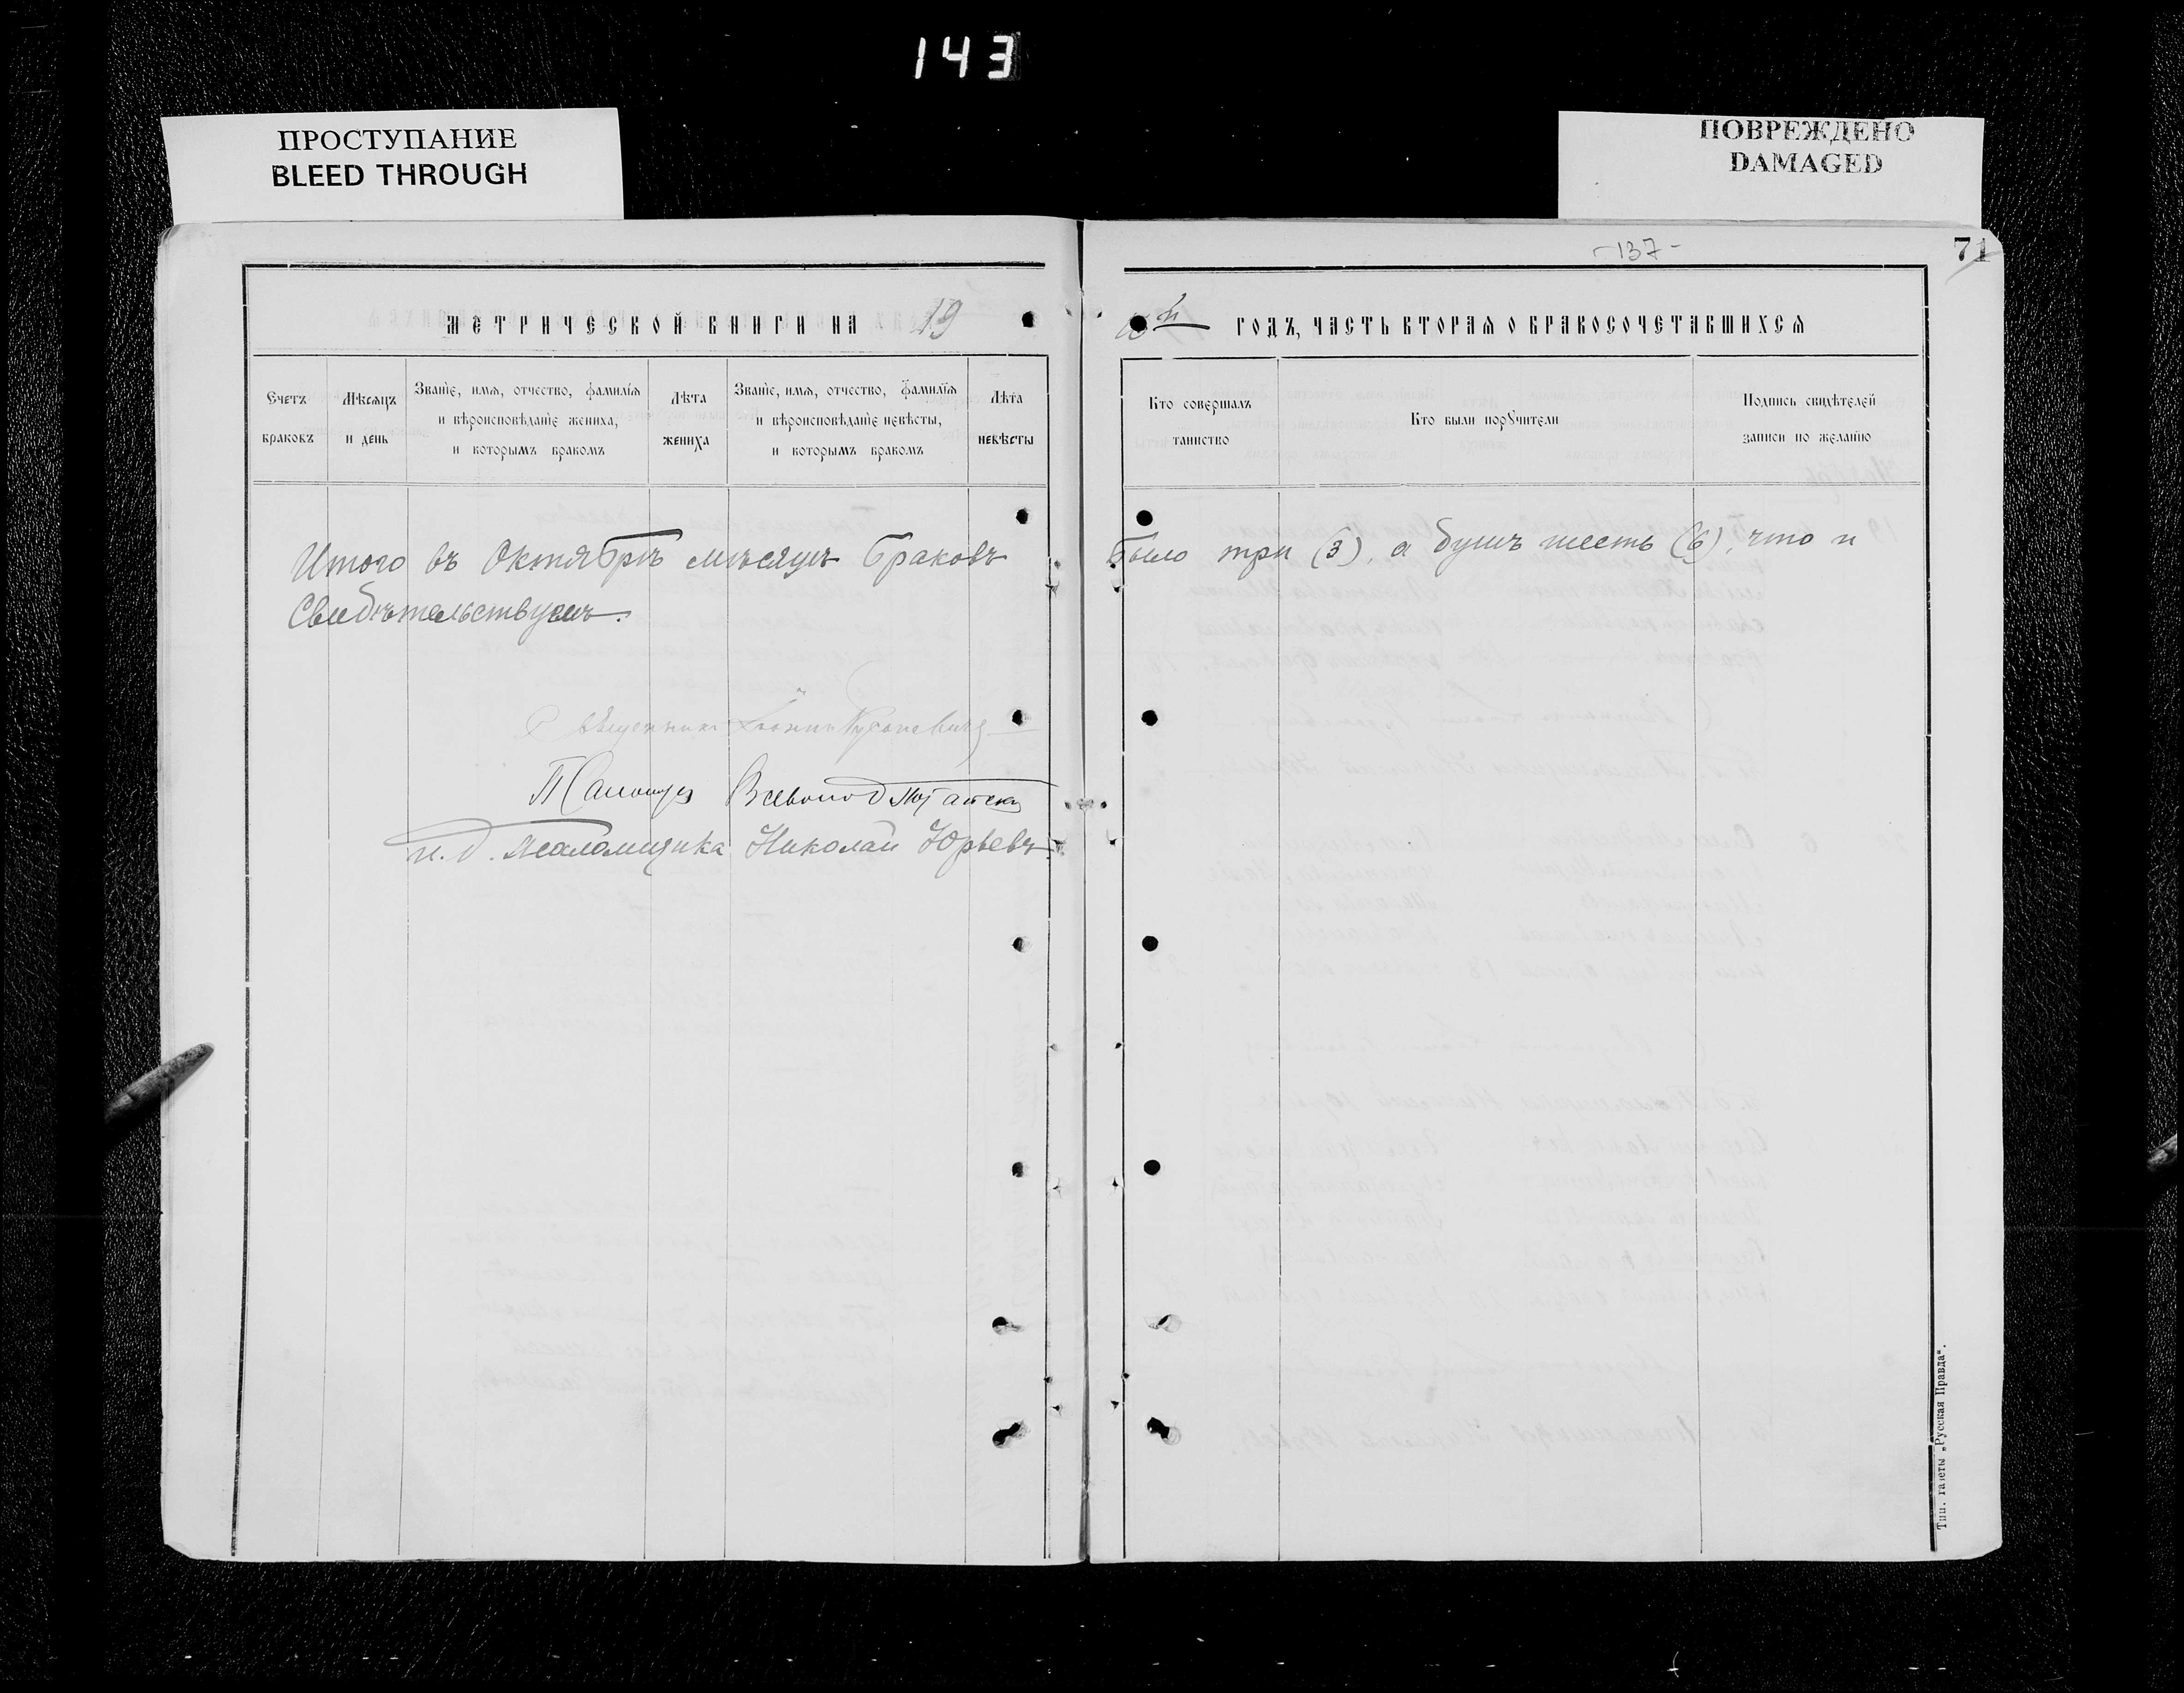 143
ПРОСТУПАНИЕ
BLEED THROUGH
ПОВРЕЖДЕНО
DAMAGED
-137-
71
МЕТРИЧЕСКОЙ КНИГИ НА 19
ГОДЪ, ЧАСТЬ ВТОРАѦ О БРАКОСОЧЕТАВШИХСѦ
Счетъ браковъ
Мѣсѧцъ и день
Званїе, имѧ, отчество, фамилїѧ и вѣроисповѣданїе жениха, и которымъ бракомъ
Лѣта жениха
Званїе, имѧ, отчество, фамилїѧ и вѣроисповѣданїе невѣсты, и которымъ бракомъ
Лѣта невѣсты
Кто совершалъ таинство
Кто были порꙋчители
Подпись свидѣтелей записи по желанїю
Итого въ Октябрѣ мѣсяцѣ браковъ было три (3), а душъ шесть (6), что и
Свидѣтельствуемъ.
Священникъ
и. д. Псаломщика Николай Юрьевъ
Тип. газеты „Русская Правда".